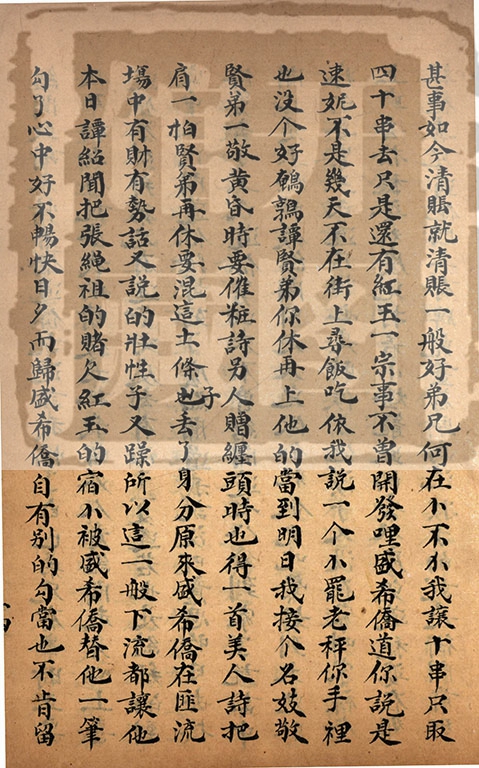 甚事如今清賬就清賬一般好弟兄何在小不小我讓十串只取
四十串去只是還有紅玉一宗事不曾開發哩盛希僑道你說是
逮妮不是幾天不在街上尋飯吃依我說一个小罷老秤你手裡
也没个好鵪鶉譚賢弟你休再上他的當到明日我接个名妓敬
賢弟一敬黄昏時要催粧詩另人贈纏頭時也得一首美人詩把
肩一怕賢弟再休要混這土條子也丢了身分原來盛希僑在匪流
塲中有財有勢話又說的壯性子又躁所以這一般下流都讓他
本日譚紹聞把張繩祖的賭欠紅玉的宿小被盛希僑替他一筆
勾了心中好不暢快日夕而歸盛希僑自有别的勾當也不肯留